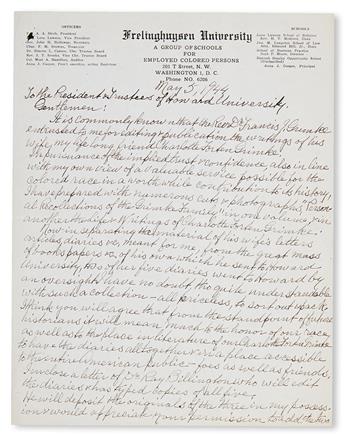 OFFICERS
SCHOOLS
Frelinghuysen University
A GROUP OF SCHOOLS
FOR
EMPLOYED COLORED PERSONS
201 T Street, N. W.
WASHINGTON 1, D. C.
Phone NO. 6206
May 5, 194
To the President & Trustees of Howard University.
Gentlemen:
It is commonly known that the Rev. Dr Francis J. Grimke
entrusted to me for editing & publication, the writings of his
wife, my life long friend, Charlotte Forten Grimke.
In pursuance of the implied trust & confidence, also in line
with my own idea of a valuable service possible for the
Colored race in a worth while contribution to its history,
I have prepared with numerous cuts & photographs, "Person-
al Recollections of the Grimke Family," in one volume, & in
another the Life & Writings of Charlotte Forten Grimke.
Now in separating the material of his wife's letters
articles diaries &c, meant for me, from the great mass
of books papers &c, of his own which he sent to Howard
University, of her five diaries went to Howard by
an oversight, have no doubt, quite understandable
with such a collection - all priceless, to sort out
I think you will agree that from the stand point of future
historians it will mean much to the honor of our race
as well as to the place in literature of our Charlotte Forten Grimke
to have the diaries all together in a place accessible
to the entire American public - foes as well as friends.
I inclose a letter of Dr Ray Billington who will edit
the diaries & has typed copies of all five.
He will deposit the originals of the three in my possess-
ion & would appreciate your permission to add